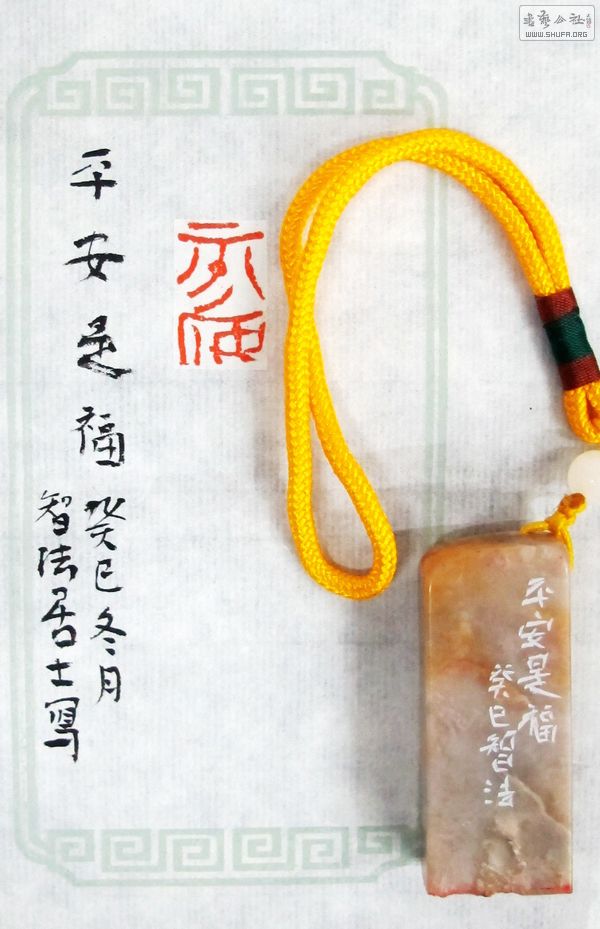 平安是福
癸巳冬月
智法居士写
平安是福
癸巳智法
WWW.SHUFA.ORG